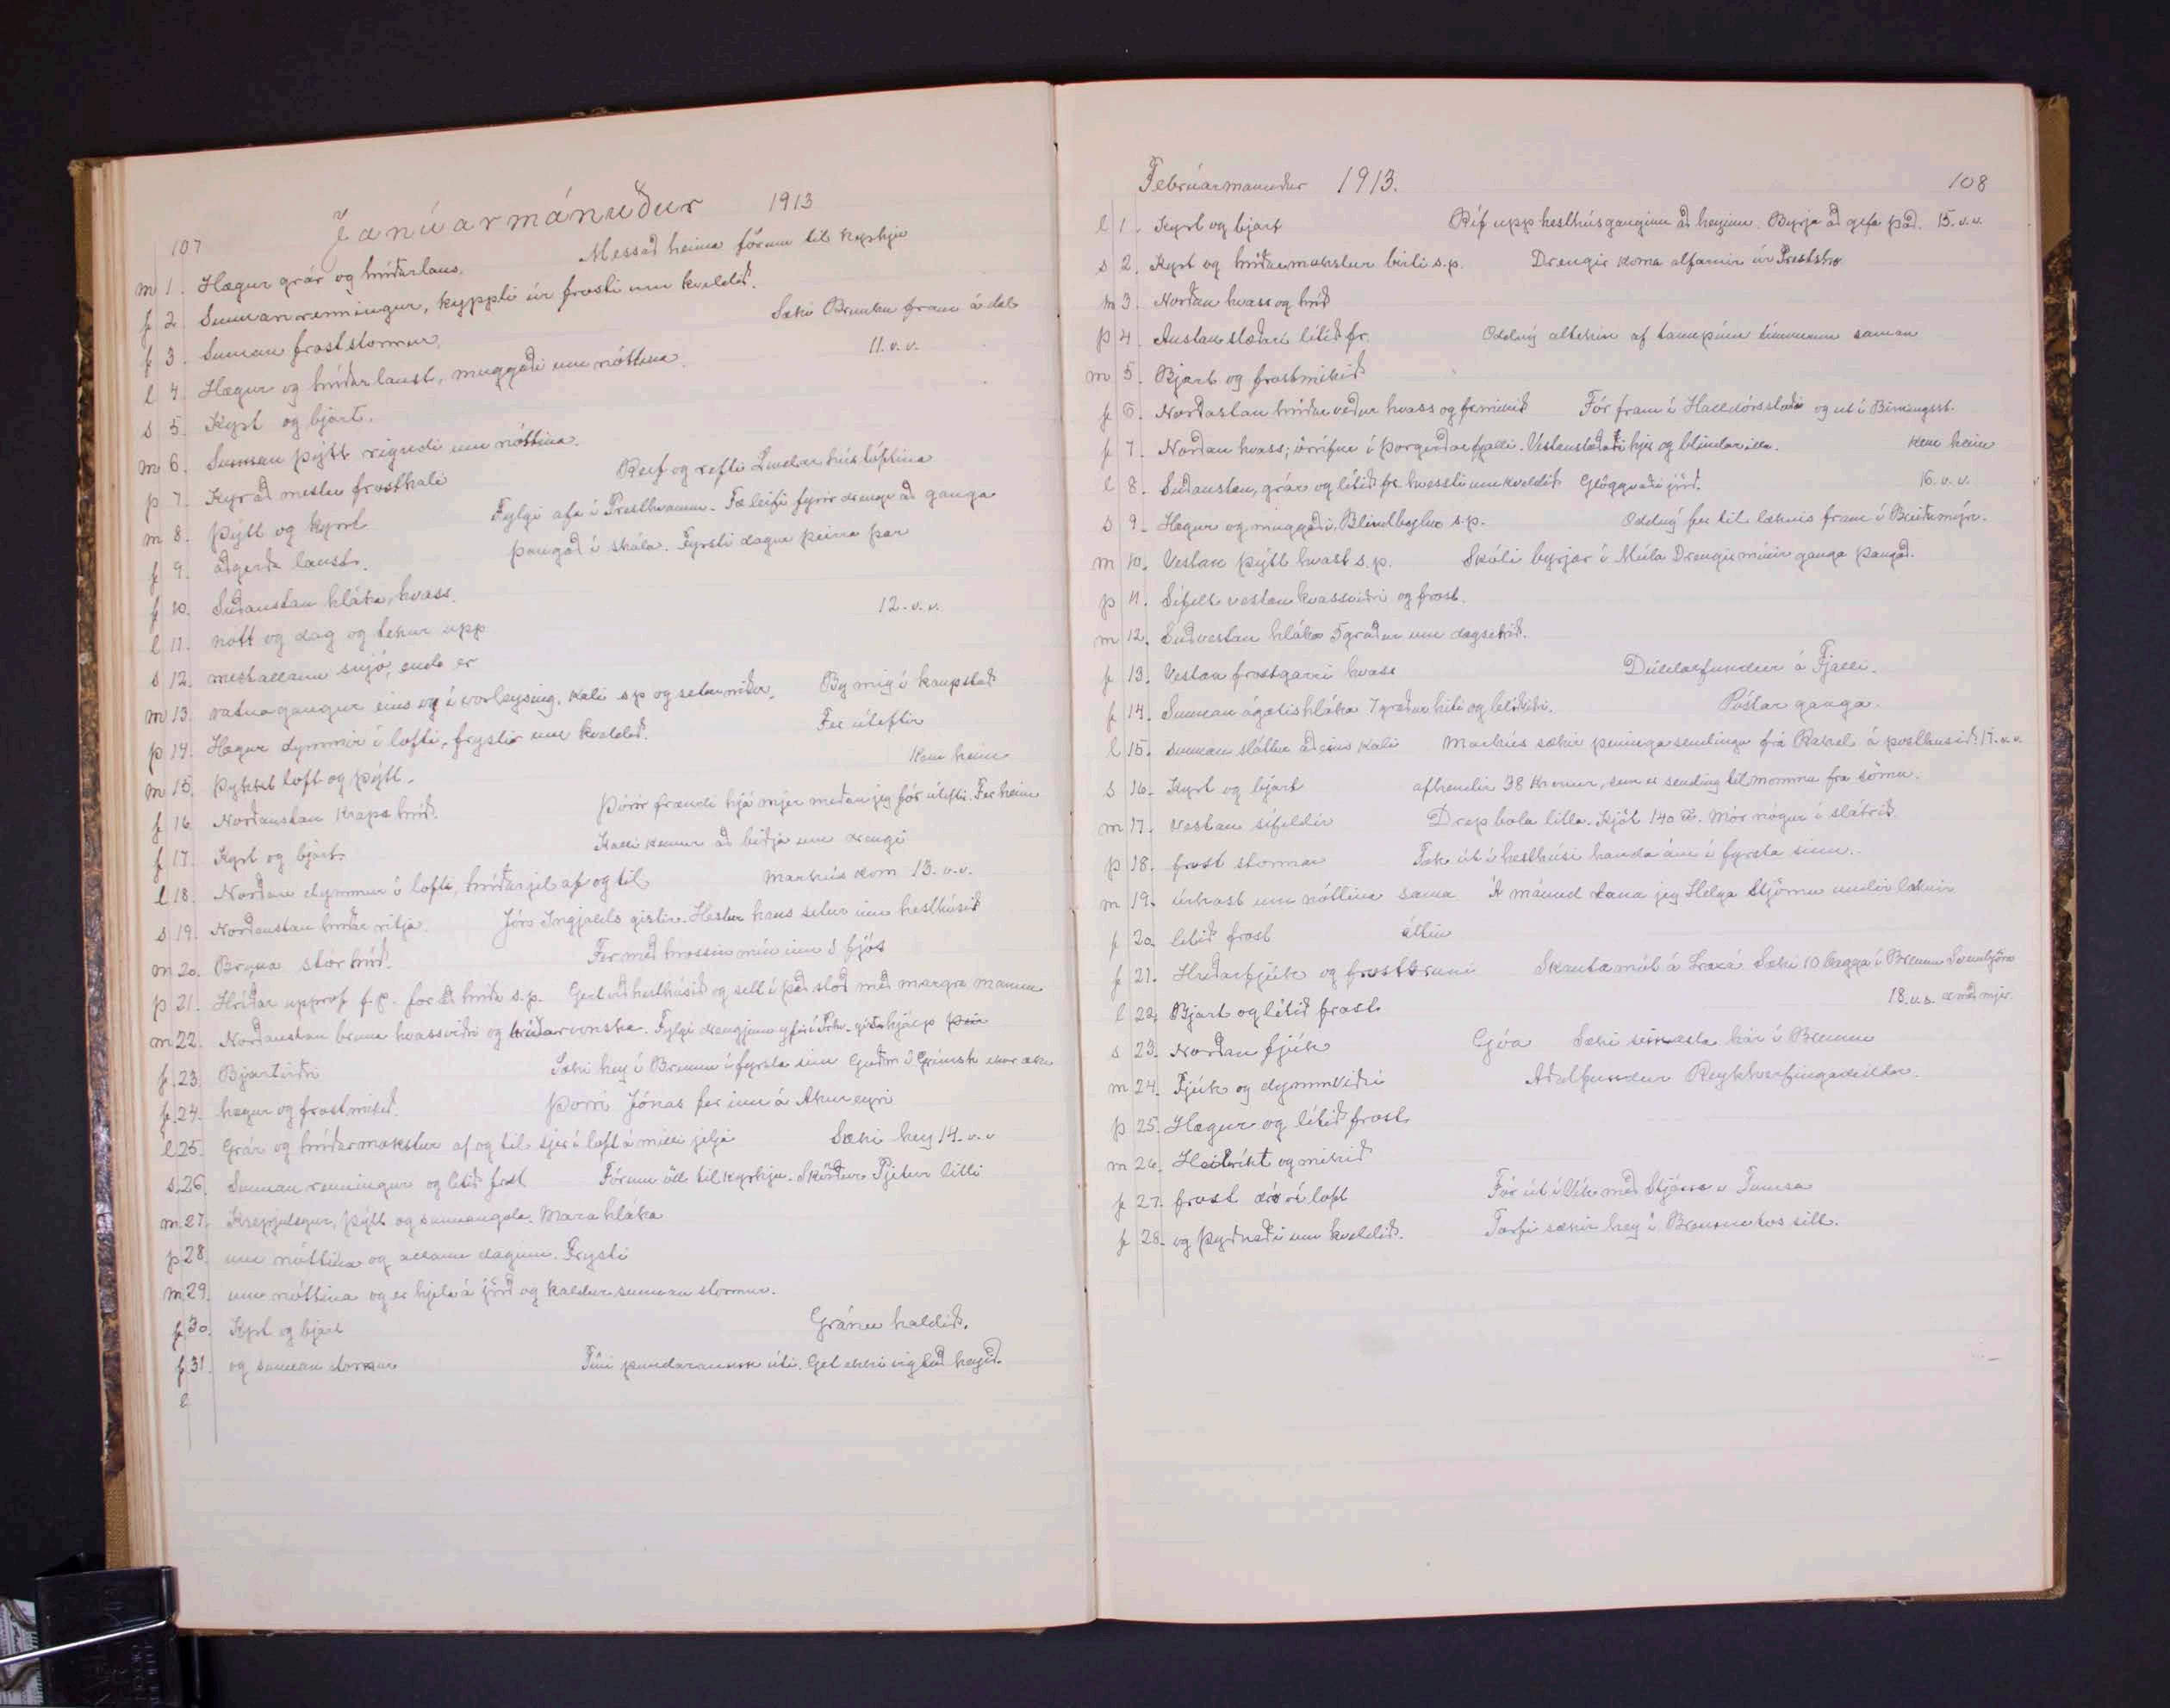 107
Janúarmánuður 1913
m 1. Hægur grár og hríðarlaus. Messað heima förum til kyrkju
f 2. Sunnanrenningur, kyppti úr frosti um kveldið.
f 3. Sunnan froststormur. Sæki Brunku fram á dal
l 4. Hægur og hríðarlaust, muggaði um nóttina. 11. v. v.
s 5. Kyrt og bjart.
m 6. Sunnan þýtt rigndi um nóttina.
þ 7. Kyr að mestu frostkali Reif og refti Lindarhústóftina
m 8. Þýtt og kyrrt Fylgi afa í Presthvamm. Fæ leifi fyrir drengi að ganga
f 9. aðgerða laust. þangað í skóla. Fyrsti dagur þeirra þar
f 10. Suðaustan hláka, hvass
l 11. nótt og dag og tekur upp 12. v. v.
s 12. mestallann snjó, enda er
m 13. vatnagangur eins og í vorleysing. Kali s.p og setur niður. By mig í kaupstað
þ 14. Hægur dymmir í lofti, frystir um kveldið. Fer úteftir
m 15. Þykkt loft og þýtt. Kem heim
f 16. Norðaustan krapahríð. Þórir frændi hjá mjer meðan jeg fór úteftir. Fer heim
f 17. Kyrt og bjart. Kalli kemur að biðja um drengi
l 18. Norðan dymmur í lofti, hríðarjel af og til Markús kom 13. v. v.
s 19. Norðaustan hríðar ritja Jón Ingjalds gistir. Hestur hans setur inn hesthúsið
m 20. Bruna stórhríð. Fer með hrossin mín inn í fjós
þ 21. Hríðar upprof f. p. for að hríða s. p. Gert við hesthúsið og sett í það stoð með margra manna
m 22. Norðaustan bruna hvassviðri og hríðarvonska. Fylgi drengjunum yfir í hjálp
f 23. Bjartviðri Sæki hey í Brunnu í fyrsta sinn
f 24. hægur og frostmikið. Þorri Jónas fer inn á Akureyri
l 25. Grár og hríðarmokstur af og til sjer í loft á milli jelja Sæki hey 14. v. v
s. 26. Sunnan renningur og lítið frost Fórum öll til kyrkju. Skírður Pjetur litli
m 27. Krepjulegur, þýtt og sunnangola. Mara hláka
þ 28. um nóttina og allann daginn. Frysti
m 29. um nóttina og er hjela á jörð og kaldur sunnan stormur.
f 30. Kyrt og bjart Gránu haldið.
f 31. og sunnan stormur Týni pundaranum úti. Get ekki vigtað heyið.
l
Februarmanuður 1913. 108
l 1. Kyrt og bjart Ríf upp hesthúsganginn að heyinu. Byrja að gefa það. 15. v. v.
s 2. Kyrt og hríðarmokstur birti s. p. Drengir koma alfarnir úr Presthv
m 3. Norðan hvass og hríð
þ 4. Austan stæðari lítið fr. Oddný altekin af tannpínu tímunum saman
m 5. Bjart og frostmikið
f 6. Norðaustan hríðarveður hvass og frmikið Fór fram í Halldórsstaði og út í Birningsst.
f 7. Norðan hvass; í Þorgerðarfjalli. Vestanstæðari hjer og blindar illa. Kem heim
l 8. Suðaustan, grár og lítið fr. hvessti um kveldið Glöggvaði jörð. 16. v. v.
s 9. Hægur og muggaði. Blindbylur s. p. Oddný fer til læknis fram í Breiðumýri.
m 10. Vestan þýtt hvast s. p. Skóli byrjar í Múla Drengir mínir ganga þangað.
þ 11. Sífelt vestan hvassviðri og frost.
m 12. Suðvestan hláka 5 gráður um dagsetrið.
f 13. Vestan frostgarri hvass Deildarfundur á Fjalli.
f 14. Sunnan ágætis hláka 7 gráður hiti og Póstar ganga.
l 15. Sunnan slíttur aðeins kali Markús sækir peninga sendingu frá Rakel á pósthusið. 17. v. v.
s 16. Kyrt og bjart afhendir 38 kronur, sem er sending til mömmu frá sömu.
m 17. Vestan sífeldir Drep bola litla. Kjöt 140 ℔. Mör nógur í slátrið.
þ 18. frost stormar Tek út í hesthúsi handa ám í fyrsta sinn.
m 19. úrkast um nóttina sama Á mánud lana jeg Helga Stjörnu undir læknir
f 20. lítið frost áttin
f 21. Hriðarfjúk og frostbruni Skautamót á Laxá Sæki 10 bagga í Brunnu
l 22. Bjart og lítið frost 18. v. v. með mjer.
s 23. Norðan fjúk Góa Sæki seinasta hár í Brunnu
m 24. Fjúk og dymmviðri Aðalfundur Reykhverfingadeildar.
þ 25. Hægur og lítið frost
m 26. Heiðríkt og mikið
f 27. frost dró í loft Fór út í Vík með Stjörnu v Tumsa
f 28. og þyðnaði um kveldið. Torfi sækir hey í Brunnutos sitt.